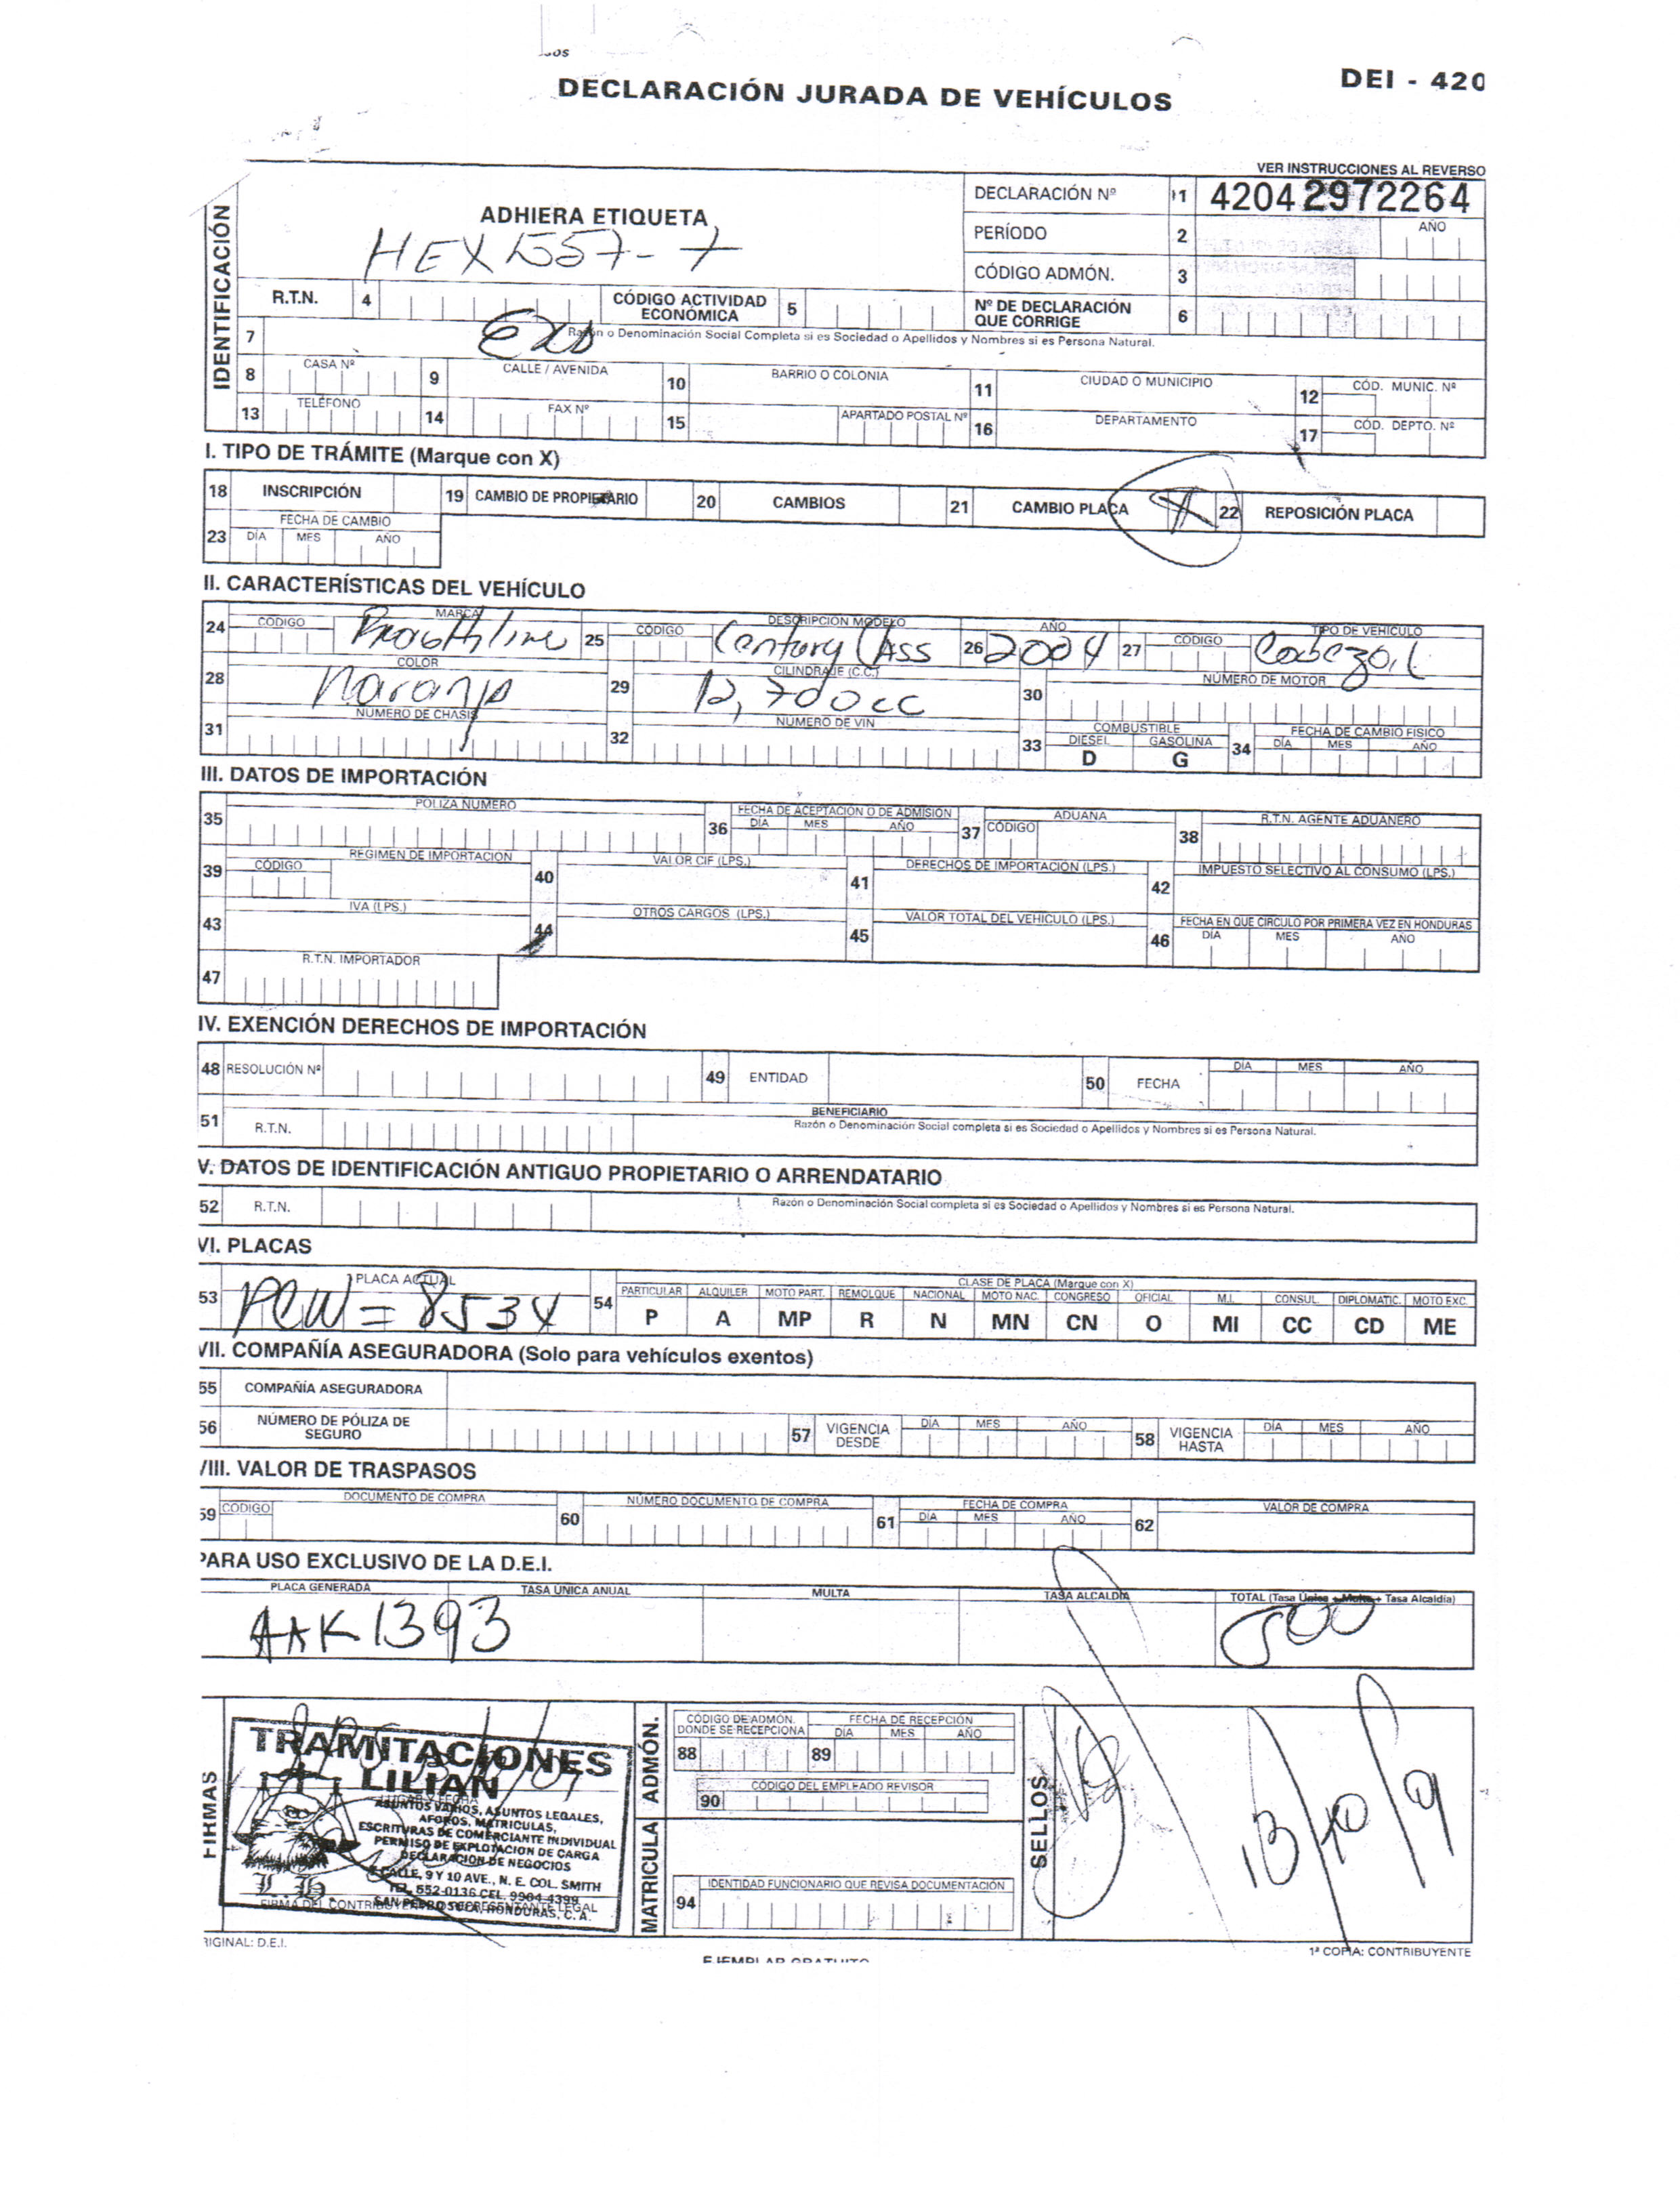 DECLARACIÓN JURADA DE VEHÍCULOS
DEI - 420
VER INSTRUCCIONES AL REVERSO
IDENTIFICACIÓN
ADHIERA ETIQUETA
HEX1557-7
DECLARACIÓN Nº 1 42042972264
PERÍODO 2 AÑO
CÓDIGO ADMÓN. 3
R.T.N. 4 CÓDIGO ACTIVIDAD ECONÓMICA 5 Nº DE DECLARACIÓN QUE CORRIGE 6
7 Razón o Denominación Social Completa si es Sociedad o Apellidos y Nombres si es Persona Natural.
8 CASA Nº 9 CALLE / AVENIDA 10 BARRIO O COLONIA 11 CIUDAD O MUNICIPIO 12 CÓD. MUNIC. Nº
13 TELÉFONO 14 FAX Nº 15 APARTADO POSTAL Nº 16 DEPARTAMENTO 17 CÓD. DEPTO. Nº
I. TIPO DE TRÁMITE (Marque con X)
18 INSCRIPCIÓN 19 CAMBIO DE PROPIETARIO 20 CAMBIOS 21 CAMBIO PLACA X 22 REPOSICIÓN PLACA
23 FECHA DE CAMBIO DÍA MES AÑO
II. CARACTERÍSTICAS DEL VEHÍCULO
24 CÓDIGO MARCA 25 CÓDIGO DESCRIPCIÓN MODELO Century Class 26 AÑO 2004 27 CÓDIGO TIPO DE VEHÍCULO Cabezal
28 COLOR Naranja 29 CILINDRAJE (C.C.) 12,700cc 30 NÚMERO DE MOTOR
31 NÚMERO DE CHASIS 32 NÚMERO DE VIN 33 COMBUSTIBLE DIESEL D GASOLINA G 34 FECHA DE CAMBIO FÍSICO DÍA MES AÑO
III. DATOS DE IMPORTACIÓN
35 POLIZA NÚMERO 36 FECHA DE ACEPTACIÓN O DE ADMISIÓN DÍA MES AÑO 37 CÓDIGO ADUANA 38 R.T.N. AGENTE ADUANERO
39 CÓDIGO REGIMEN DE IMPORTACIÓN 40 VALOR CIF (LPS.) 41 DERECHOS DE IMPORTACIÓN (LPS.) 42 IMPUESTO SELECTIVO AL CONSUMO (LPS.)
43 IVA (LPS.) 44 OTROS CARGOS (LPS.) 45 VALOR TOTAL DEL VEHÍCULO (LPS.) 46 FECHA EN QUE CIRCULO POR PRIMERA VEZ EN HONDURAS DÍA MES AÑO
47 R.T.N. IMPORTADOR
IV. EXENCIÓN DERECHOS DE IMPORTACIÓN
48 RESOLUCIÓN Nº 49 ENTIDAD 50 FECHA DÍA MES AÑO
51 R.T.N. BENEFICIARIO Razón o Denominación Social completa si es Sociedad o Apellidos y Nombres si es Persona Natural.
V. DATOS DE IDENTIFICACIÓN ANTIGUO PROPIETARIO O ARRENDATARIO
52 R.T.N. Razón o Denominación Social completa si es Sociedad o Apellidos y Nombres si es Persona Natural.
VI. PLACAS
53 PLACA ACTUAL PCW = 8534 54 CLASE DE PLACA (Marque con X)
PARTICULAR ALQUILER MOTO PART. REMOLQUE NACIONAL MOTO NAC. CONGRESO OFICIAL M.I. CONSUL. DIPLOMATIC. MOTO EXC.
P A MP R N MN CN O MI CC CD ME
VII. COMPAÑÍA ASEGURADORA (Solo para vehículos exentos)
55 COMPAÑÍA ASEGURADORA
56 NÚMERO DE PÓLIZA DE SEGURO 57 VIGENCIA DESDE DÍA MES AÑO 58 VIGENCIA HASTA DÍA MES AÑO
VIII. VALOR DE TRASPASOS
59 CÓDIGO DOCUMENTO DE COMPRA 60 NÚMERO DOCUMENTO DE COMPRA 61 FECHA DE COMPRA DÍA MES AÑO 62 VALOR DE COMPRA
PARA USO EXCLUSIVO DE LA D.E.I.
PLACA GENERADA TASA ÚNICA ANUAL MULTA TASA ALCALDÍA TOTAL (Tasa Única + Multa + Tasa Alcaldía)
AAK1393 500
FIRMAS
TRAMITACIONES
LILIAN
LUGAR Y FECHA
ASUNTOS VARIOS, ASUNTOS LEGALES,
AFOROS, MATRICULAS,
ESCRITURAS DE COMERCIANTE INDIVIDUAL
PERMISO DE EXPLOTACION DE CARGA
DECLARACION DE NEGOCIOS
CALLE, 9 Y 10 AVE., N. E. COL. SMITH
TEL. 552-0136 CEL. 9964-4399
SAN PEDRO SULA, HONDURAS, C. A.
FIRMA DEL CONTRIBUYENTE O REPRESENTANTE LEGAL
MATRICULA ADMÓN.
CÓDIGO DE ADMÓN. DONDE SE RECEPCIONA 88
FECHA DE RECEPCIÓN DÍA MES AÑO 89
CÓDIGO DEL EMPLEADO REVISOR 90
IDENTIDAD FUNCIONARIO QUE REVISA DOCUMENTACIÓN 94
SELLOS
13/10/9
RIGINAL: D.E.I.
EJEMPLAR GRATUITO
1ª COPIA: CONTRIBUYENTE